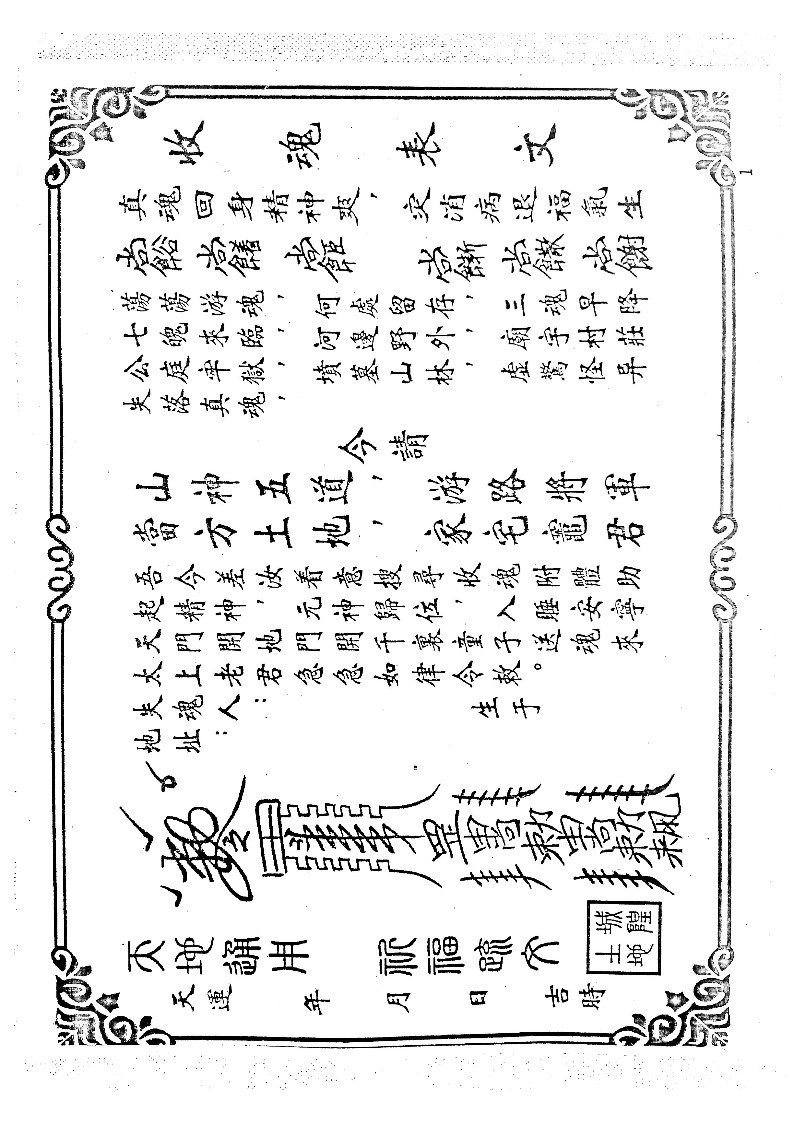 收魂表文
真魂回身精神爽,災消病退福氣生
蕩蕩游魂,何處留存,三魂早降
七魄來臨,河邊野外,廟宇村莊
公庭牢獄,墳墓山林,虛驚怪异
失落真魂,
今請
山神五道,游路將軍
當方土地,家宅竈君
吾今差汝着意搜尋收魂附體助
起精神,元神歸位,入睡安寧
天門開地門開千裏童子送魂來
太上老君急急如律令敕。
失魂人: 生于
地址:
天地通用 祈福疏文
城隍土地
天運 年 月 日 吉時
1